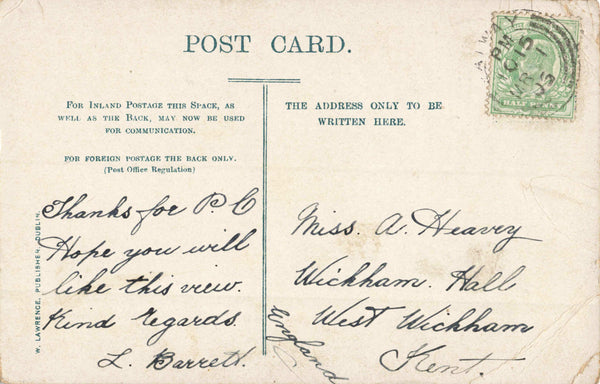 POST CARD.
FOR INLAND POSTAGE THIS SPACE, AS
WELL AS THE BACK, MAY NOW BE USED
FOR COMMUNICATION.
FOR FOREIGN POSTAGE THE BACK ONLY.
(Post Office Regulation)
THE ADDRESS ONLY TO BE
WRITTEN HERE.
HALF PENNY
Thanks for P.C
Hope you will
like this view.
Kind regards.
L. Barrett.
Miss. A. Heavey
Wickham. Hall
West Wickham
Kent.
England
W. LAWRENCE, PUBLISHER, DUBLIN.